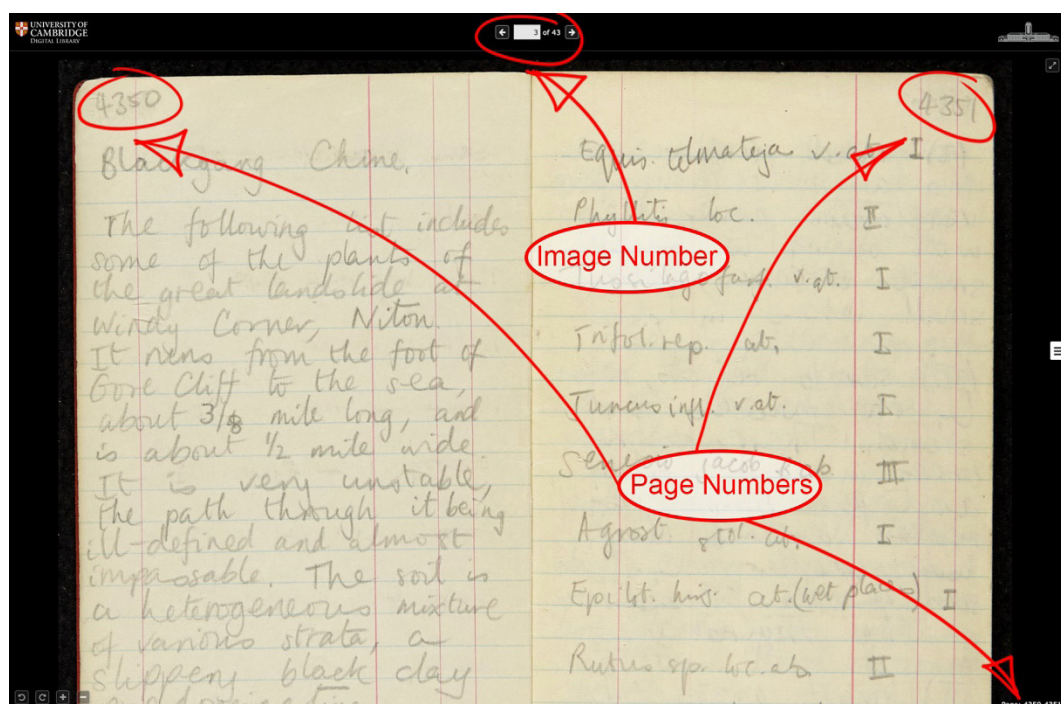 UNIVERSITY OF
CAMBRIDGE
DIGITAL LIBRARY
3 of 43
4350
Blackgang Chine.
The following list includes
some of the plants of
the great landslide at
Windy Corner, Niton.
It runs from the foot of
Gore Cliff to the sea,
about 3/8 mile long, and
is about 1/2 mile wide.
It is very unstable,
the path through it being
ill-defined and almost
impassable. The soil is
a heterogeneous mixture
of various strata, a
slippery black clay
4351
Equis. telmateja v. ab. I
Phyllitis loc. II
Tussilago farf. v. ab. I
Trifol. rep. ab. I
Juncus infl. v. ab. I
Senecio jacob III
Agrost. stol. ab. I
Epilob. hirs. ab. (wet places) I
Rubus sp. loc. ab. II
Image Number
Page Numbers
Page: 4350-4351